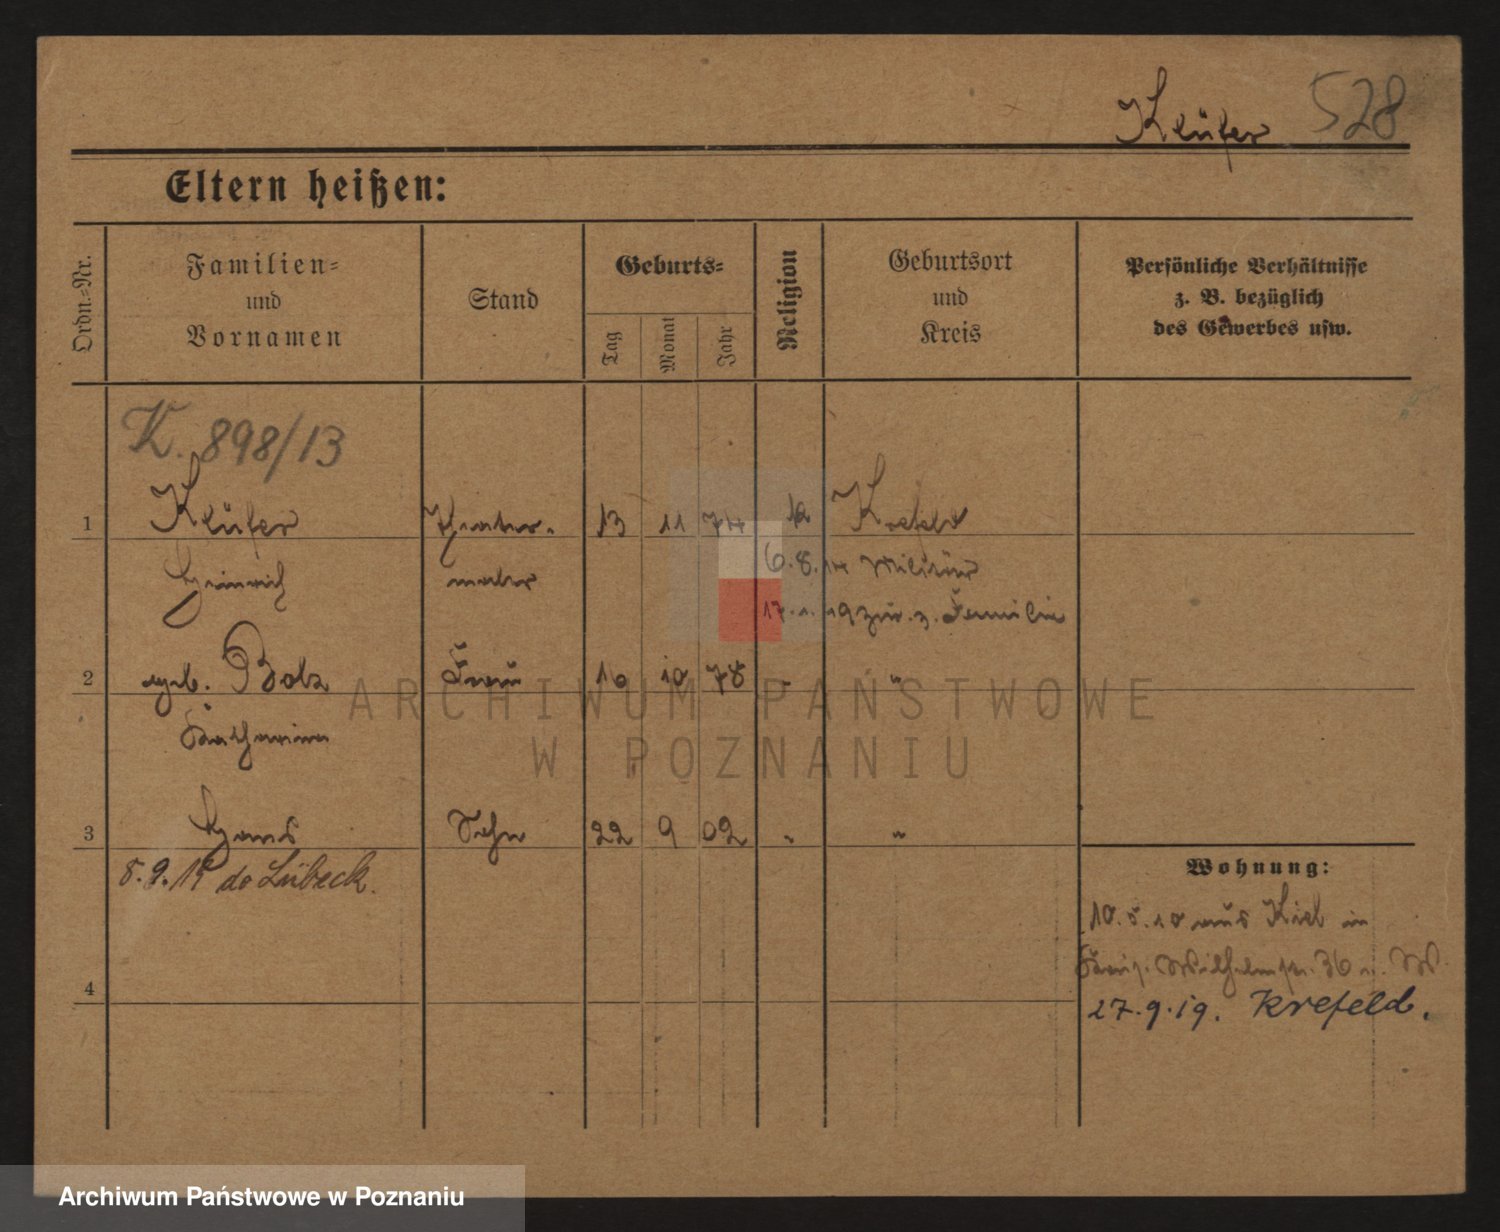 Klüfer 528
Eltern heißen:
Ordn.-Nr.
Familien-
und
Vornamen
Stand
Geburts-
Tag
Monat
Jahr
Religion
Geburtsort
und
Kreis
Persönliche Verhältnisse
z. B. bezüglich
des Gewerbes usw.
K. 898/13
1 Klüfer Theater- 13 11 74 Krefeld
Heinrich maler 6.8.14 Militär
17.1.19 zur. z. Familie
2 geb. Bolz Frau 16 10 78 " "
Katharina
3 Hans Sohn 22 9 02 " "
8.9.15 do Lübeck.
Wohnung:
10.5.10 aus Kiel in
Wilhelmstr. 36 W.
4
27.9.19. Krefeld.
ARCHIWUM PAŃSTWOWE
W POZNANIU
Archiwum Państwowe w Poznaniu